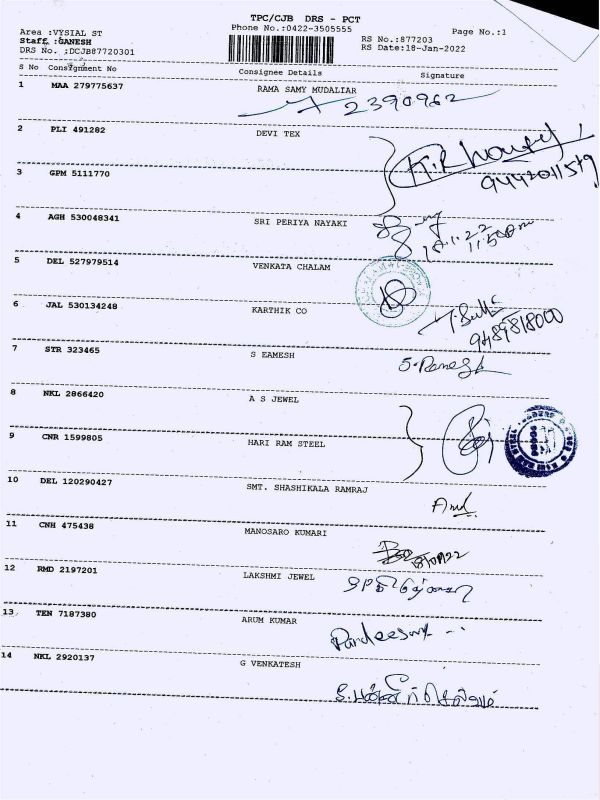 TPC/CJB DRS - PCT
Phone No.:0422-3505555
Page No.:1
Area :VYSIAL ST
Staff :GANESH
RS No.:877203
DRS No. :DCJB87720301
RS Date:18-Jan-2022
S No Consignment No Consignee Details Signature
1 MAA 279775637 RAMA SAMY MUDALIAR
2390962
2 PLI 491282 DEVI TEX
3 GPM 5111770
4 AGH 530048341 SRI PERIYA NAYAKI
5 DEL 527979514 VENKATA CHALAM
6 JAL 530134248 KARTHIK CO
9489818000
7 STR 323465 S EAMESH
8 NKL 2866420 A S JEWEL
9 CNR 1599805 HARI RAM STEEL
10 DEL 120290427 SMT. SHASHIKALA RAMRAJ
11 CNH 475438 MANOSARO KUMARI
12 RMD 2197201 LAKSHMI JEWEL
13 TEN 7187380 ARUM KUMAR
14 NKL 2920137 G VENKATESH